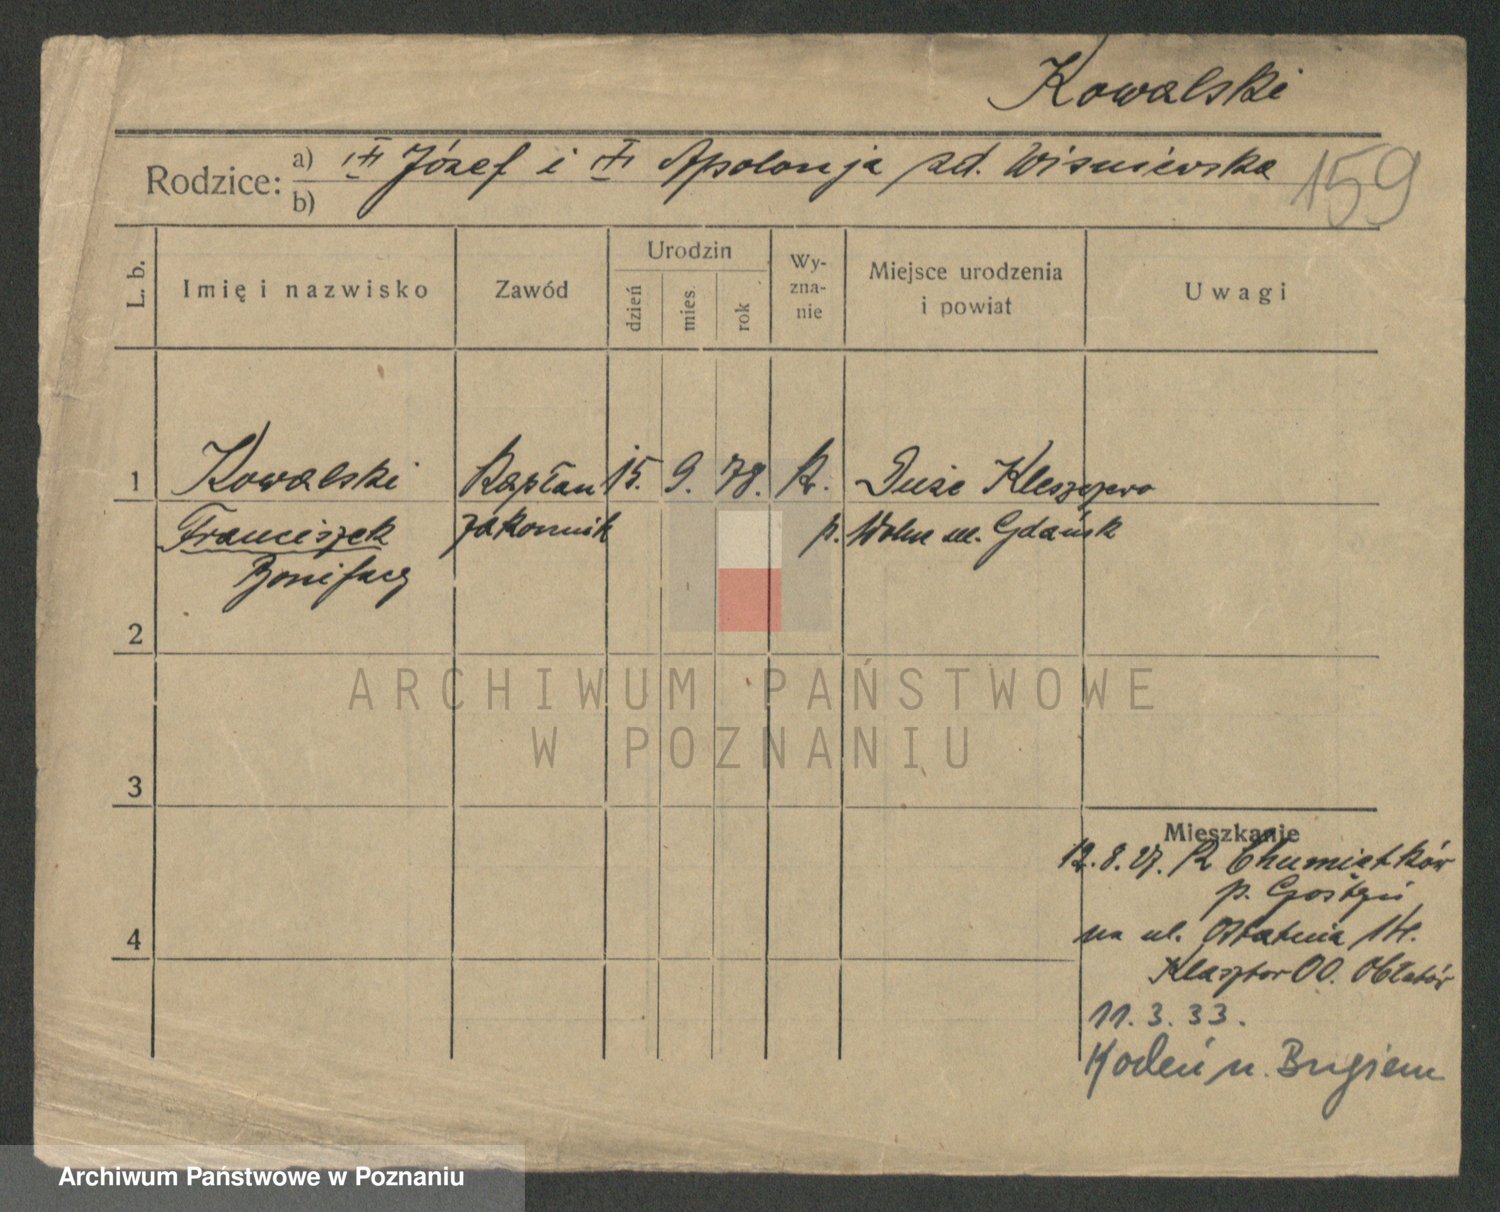 Kowalski
Rodzice: a) Józef i Apolonja zd. Wiśniewska
b)
159
L. b.
Imię i nazwisko
Zawód
Urodzin
dzień
mies.
rok
Wy-
zna-
nie
Miejsce urodzenia
i powiat
Uwagi
1 Kowalski Kapłan 15. 9. 78. R. Duże Kleszczewo
Franciszek zakonnik p. Wolne m. Gdańsk
Bonifacy
2
3
4
ARCHIWUM PAŃSTWOWE
W POZNANIU
Mieszkanie
12.8.27. Chumiątków
p. Gostyń
na ul. Ostatnia 14.
Klasztor OO. Obłatów
11.3.33.
Kodeń n. Bugiem
Archiwum Państwowe w Poznaniu